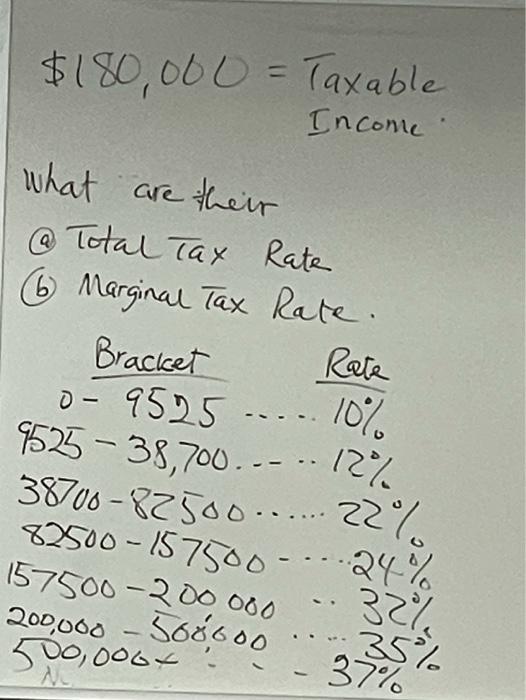 $180,000 = Taxable
Income
What are their
(a) Total Tax Rate
(b) Marginal Tax Rate.
Bracket Rate
0 - 9525 ..... 10%
9525 - 38,700.--.. 12%
38700 - 82500...... 22%
82500 - 157500 - ....24%
157500 - 200000 .. 32%
200,000 - 500,000 .... 35%
500,000+ - - - 37%